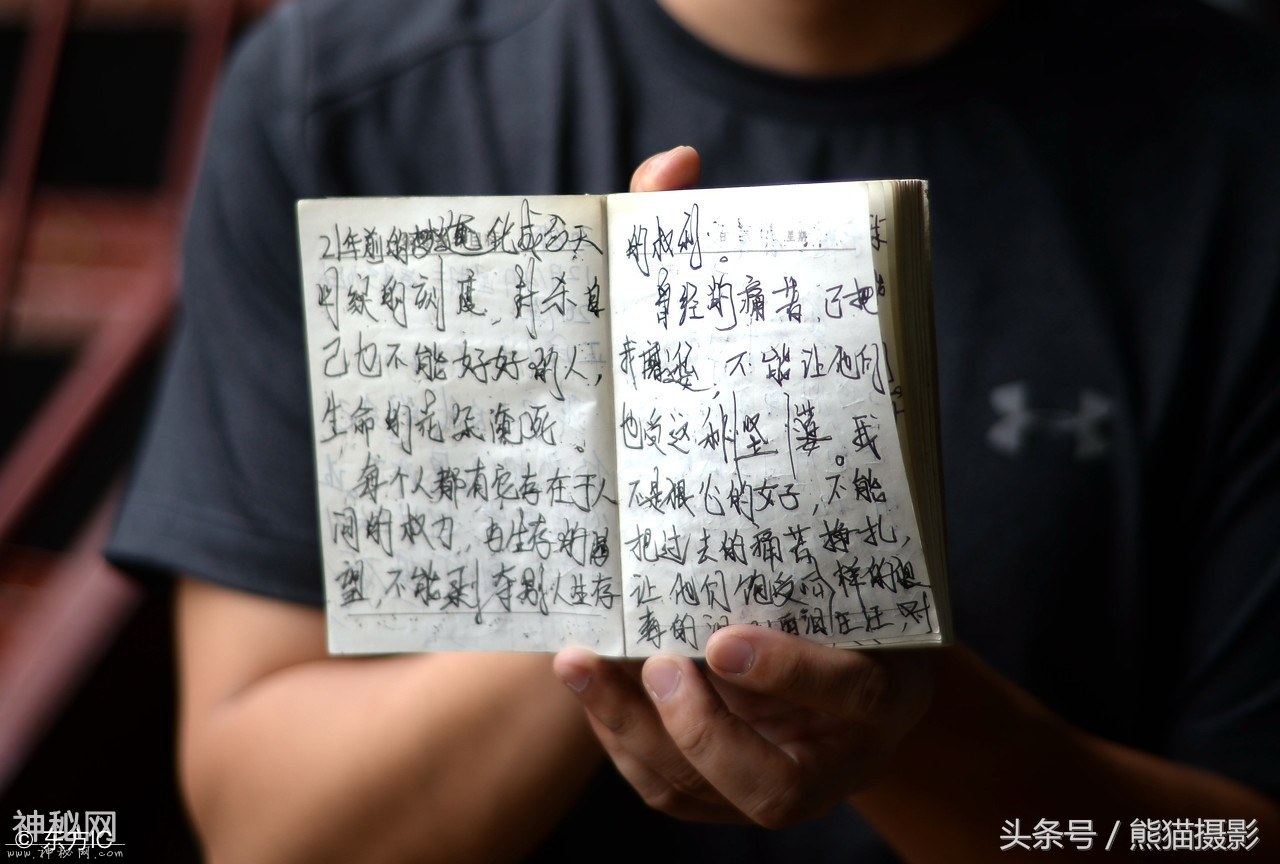 21年前的 化成百天
时候的刻度,封杀自
己也不能好好的人,
生命的花朵 死。
每个人都有它存在于人
间的权力,由生存的渴
望,不能剥夺别人生存
的权利。
星期
曾经的痛苦,已把
我磨 ,不能让他们
也受这种 。我
不是狠心的女子,不能
把过去的痛苦挣扎,
让他们饱受同样的
的 泪汪汪,对
神秘网
© 东方IC
www.神秘网.com
头条号 / 熊猫摄影